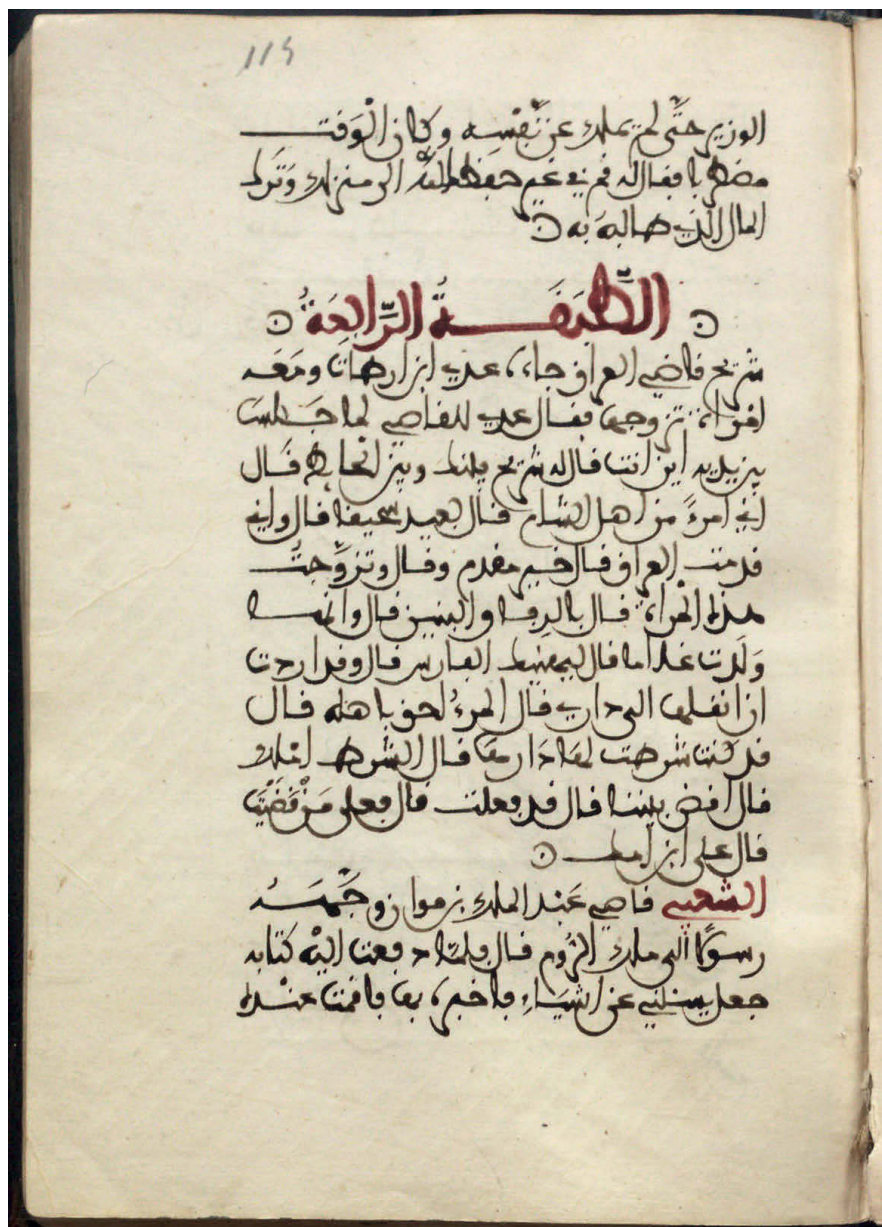 115
الوزير حتَّى لم يملك عن نَّفْسِه وكان الْوَقت
مضطربا فقال له قم في غير حفظ اللَّه الى منزلك وَترك
المال الذي طالبهَ به
الطَّبَقَــةُ الرَّابِعَةُ
شريح قاضي العراق جاءه عدي ابن ارطات ومَعَه
امرأة تزوجها فقال عدي للقاضي لما جَــلسَ
بين يديه اين انت قال له شريح بينك وبين الْحايط قــال
اني امرءٌ من اهل الشام قــال بعيد سحيق قال واني
قدمت العراق قــال خيــر مقدم وقــال وتزوَّجتُ
هذه الْمرأة قــال بالرفا والبنين قال وانهــا
وَلَدت غلاما قال ليهنيك الفارس قال وقد اردت
ان انقلها الى داري قــال المرءُ احق باهله قــال
قد كنت شرطت لها دَارهَا قــال الشرط امْلك
قال اقض بيننا قال قد فعلت قال فعلى مَنْ قَضَيْتَ
قال على ابن امك
الشعبي قاضي عَبْد الملك بن مروان وجَّهــهُ
رسولًا الى ملك الرُّوم قــال فلمّا دفعت اليْه كتابه
جعل يسئلني عن اشيَاءِ فاخبره بها فاقمت عنْده